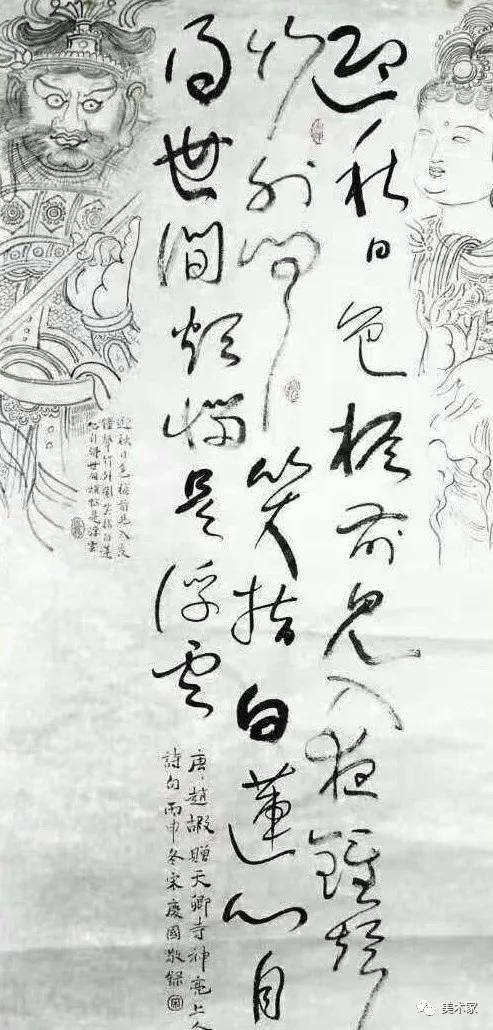 迎秋日色檐前見入夜鐘聲
竹外聞笑指白蓮心自
得世間煩惱是浮雲
唐趙嘏贈天卿寺神亮上人
詩句丙申冬宋慶國敬錄
迎秋日色檐前見入夜
鐘聲竹外聞笑指白蓮
心自得世間煩惱是浮雲
美术家